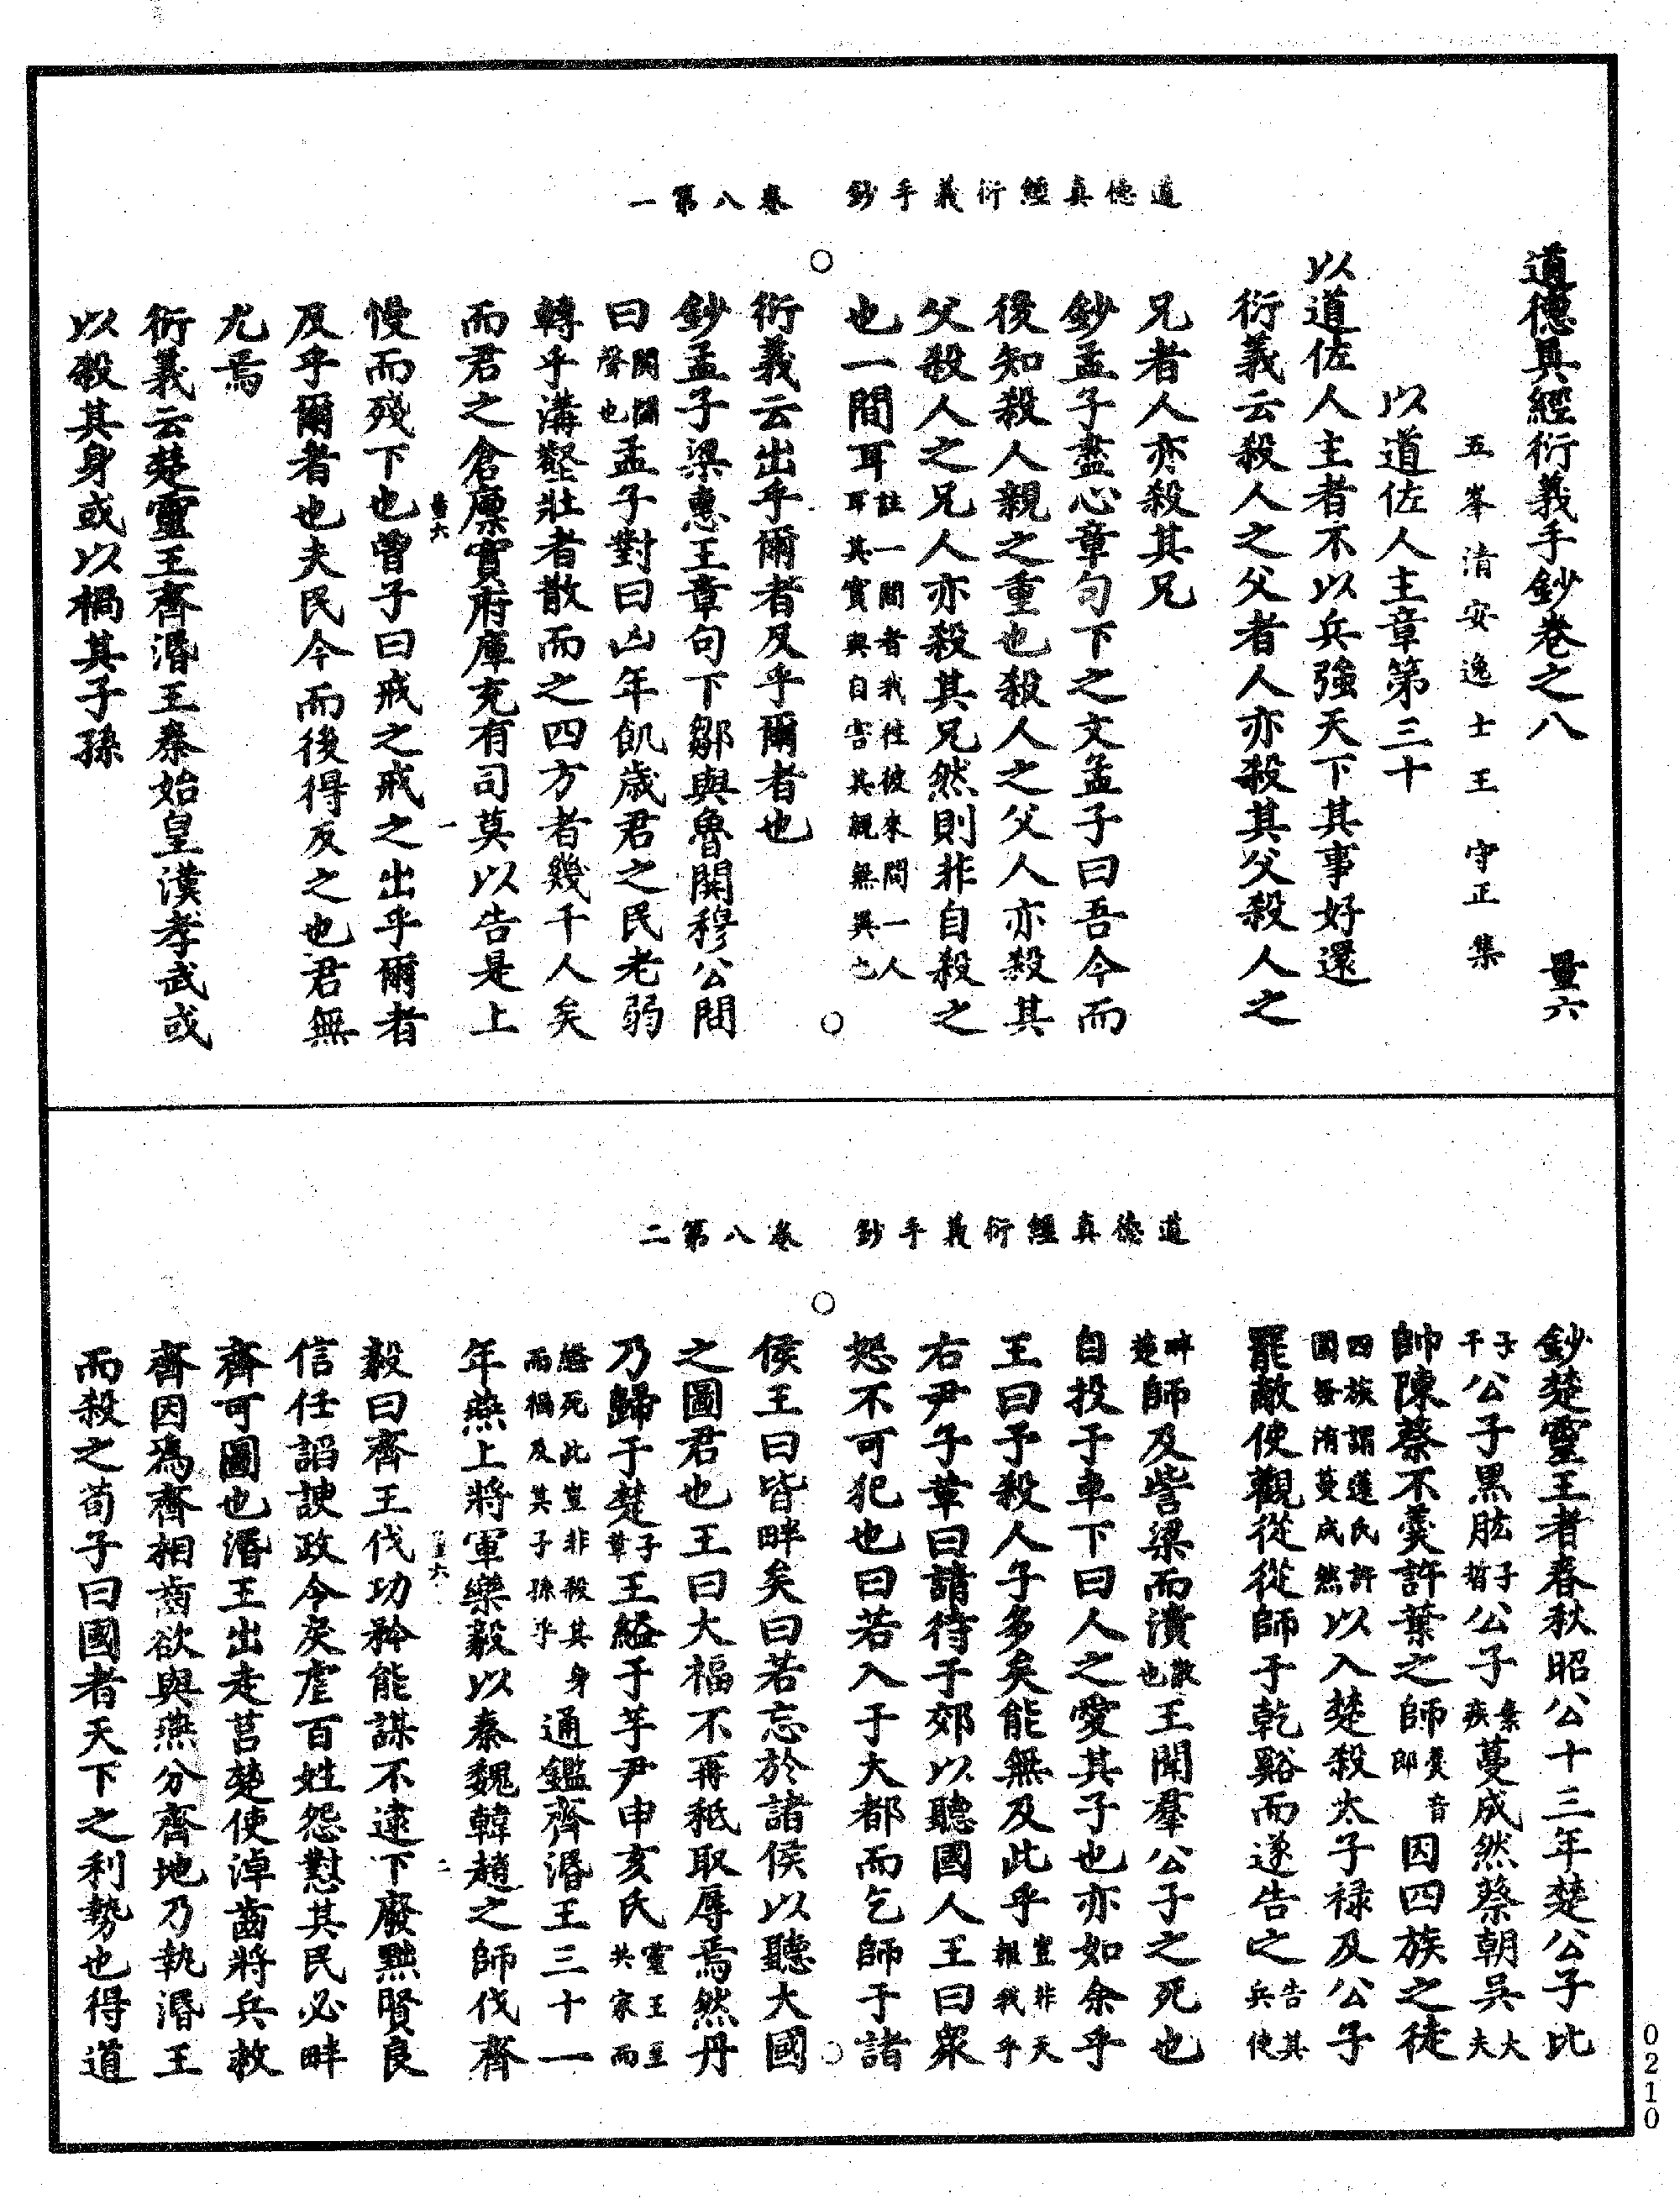 道德真經衍義手鈔卷之八　量六
五峯清安逸士王守正集
以道佐人主章第三十
以道佐人主者不以兵強天下其事好還
衍義云殺人之父者人亦殺其父殺人之
兄者人亦殺其兄
鈔孟子盡心章句下之文孟子曰吾今而
後知殺人親之重也殺人之父人亦殺其
父殺人之兄人亦殺其兄然則非自殺之
也一間耳註一間者我往彼來間一人耳其實與自害其親無異也
道德真經衍義手鈔　卷八第一
衍義云出乎爾者反乎爾者也
鈔孟子梁惠王章句下鄒與魯鬨穆公問
曰鬨鬭聲也孟子對曰凶年飢歲君之民老弱
轉乎溝壑壯者散而之四方者幾千人矣
而君之倉廩實府庫充有司莫以告是上
量六　一
慢而殘下也曾子曰戒之戒之出乎爾者
反乎爾者也夫民今而後得反之也君無
尤焉
衍義云楚靈王齊湣王秦始皇漢孝武或
以殺其身或以禍其子孫
鈔楚靈王者春秋昭公十三年楚公子比
子干公子黑肱子晳公子棄疾蔓成然蔡朝吳大夫
帥陳蔡不羹許葉之師羹音郎因四族之徒
四族謂薳氏許圍蔡洧蔓成然以入楚殺太子祿及公子
罷敵使觀從從師于乾谿而遂告之告其使兵
畔楚師及訾梁而潰散也王聞羣公子之死也
自投于車下曰人之愛其子也亦如余乎
王曰予殺人子多矣能無及此乎豈非天報我乎
右尹子革曰請待于郊以聽國人王曰衆
怒不可犯也曰若入于大都而乞師于諸
道德真經衍義手鈔　卷八第二
侯王曰皆畔矣曰若忘於諸侯以聽大國
之圖君也王曰大福不再秪取辱焉然丹
乃歸于楚子革王縊于芋尹申亥氏靈王至其家而
縊死此豈非殺其身而禍及其子孫乎通鑑齊湣王三十一
年燕上將軍樂毅以秦魏韓趙之師伐齊
量六　二
毅曰齊王伐功矜能謀不逮下廢黜賢良
信任諂諛政令戾虐百姓怨懟其民必畔
齊可圖也湣王出走莒楚使淖齒將兵救
齊因為齊相齒欲與燕分齊地乃執湣王
而殺之荀子曰國者天下之利勢也得道
0210